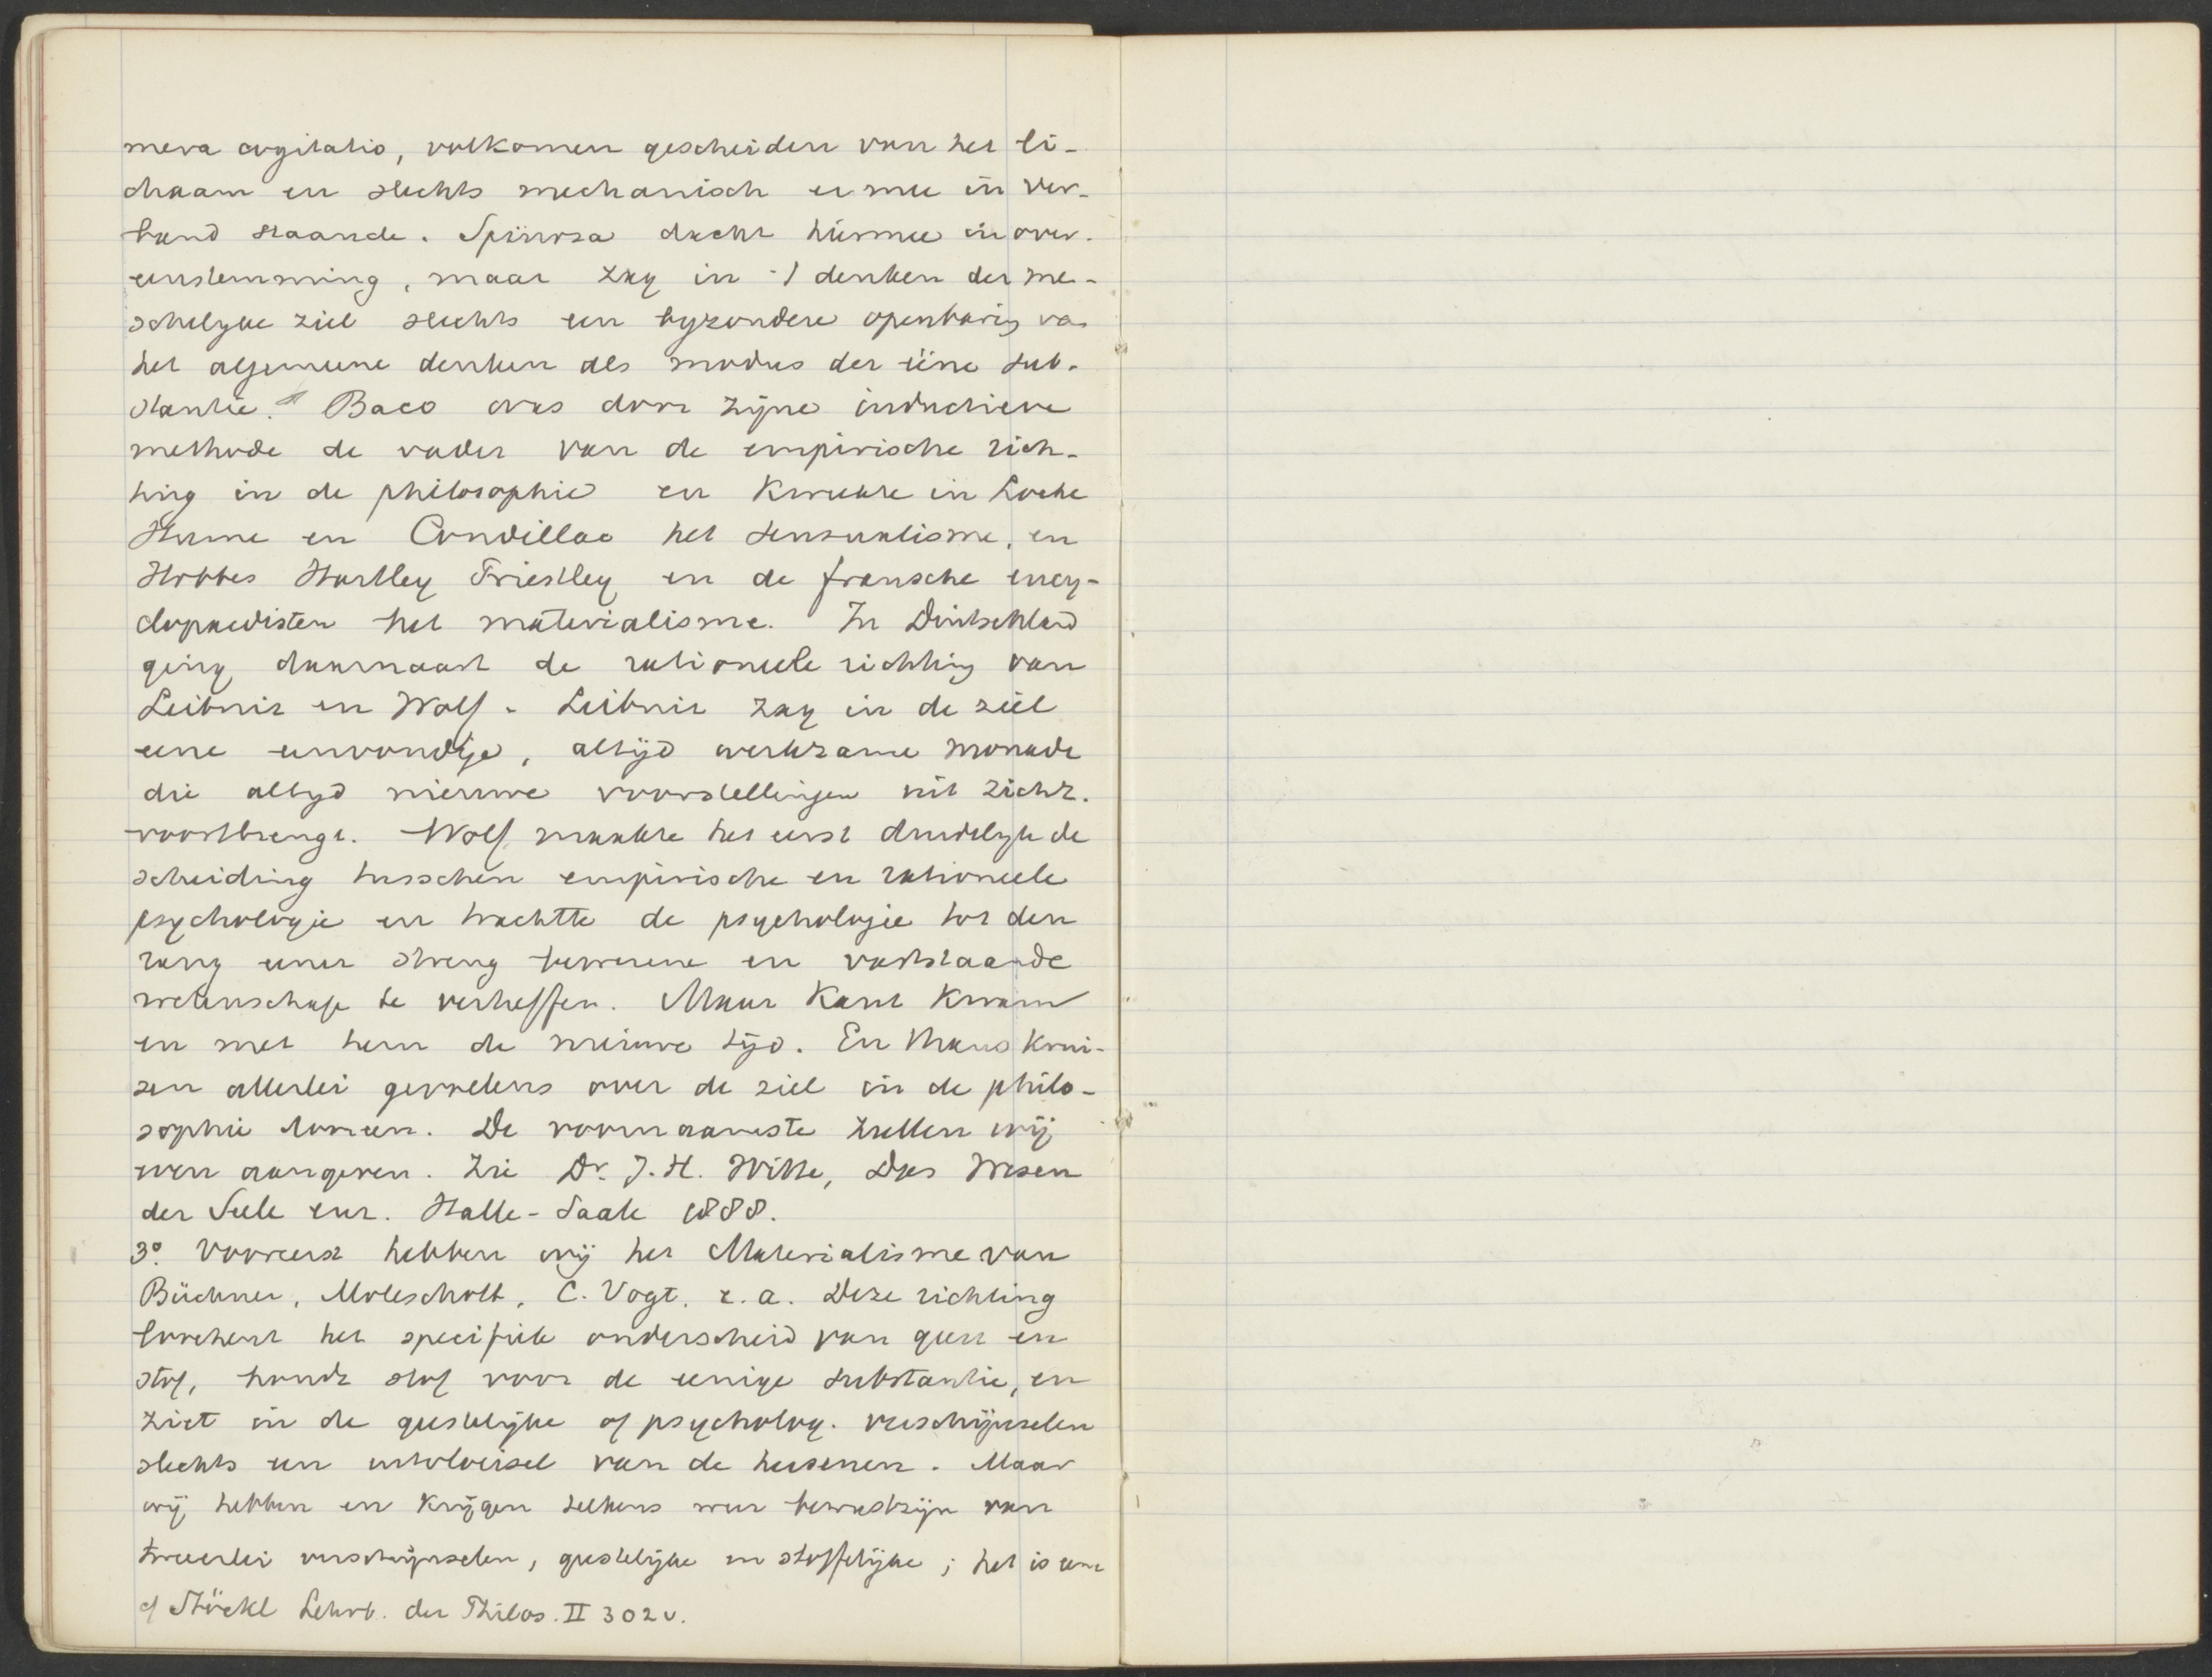 mera cogitatio, volkomen gescheiden van het li-
chaam en slechts mechanisch er mee in ver-
band staande. Spinoza dacht hiermee in over-
eenstemming, maar zag in 't denken der me-
schelyke ziel slechts een byzondere openbaring va
het algemeene denken als modus der ééne sub-
stantie. Baco was door zijne inductieve
methode de vader van de empirische rich-
ting in de philosophie en kweekte in Locke
Hume en Condillac het sensualisme, en
Hobbes Hartley Priestley en de fransche ency-
clopaedisten het materialisme. In Duitschland
ging daarnaast de rationeele richting van
Leibniz en Wolf. Leibniz zag in de ziel
eene eenvoudige, altijd werkzame monade
die altyd nieuwe voorstellingen uit zichz.
voortbrengt. Wolf maakte het eerst duidelyk de
scheiding tusschen empirische en rationeele
psychologie en trachtte de psychologie tot den
rang eener streng bewezene en vaststaande
wetenschap te verheffen. Maar Kant kwam
en met hem de nieuwe tijd. En thans krui-
sen allerlei gevoelens over de ziel in de philo-
sophie dooreen. De voornaamste zullen wij
even aangeven. Zie Dr. J. H. Witte, Das Wesen
der Seele enz. Halle-Saale 1888.
3º. Vooreerst hebben wij het Materialisme van
Büchner, Moleschott, C. Vogt, e.a. Deze richting
loochent het specifiek onderscheid van geest en
stof, houdt stof voor de eenige substantie, en
ziet in de geestelijke of psycholog. verschijnselen
slechts een uitvloeisel van de hersenen. Maar
wij hebben en krijgen telkens weer bewustzijn van
tweeerlei verschijnselen, geestelijke en stoffelijke; het is eene
cf Stöckl Lehrb. der Philos. II 302 v.